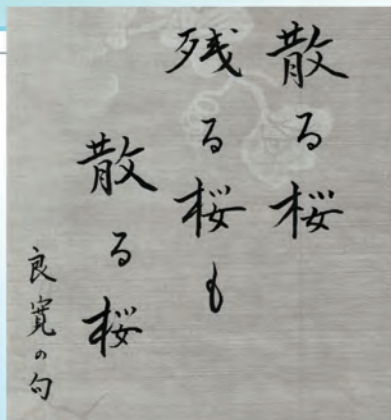 散る桜
残る桜も
散る桜
良寛の句